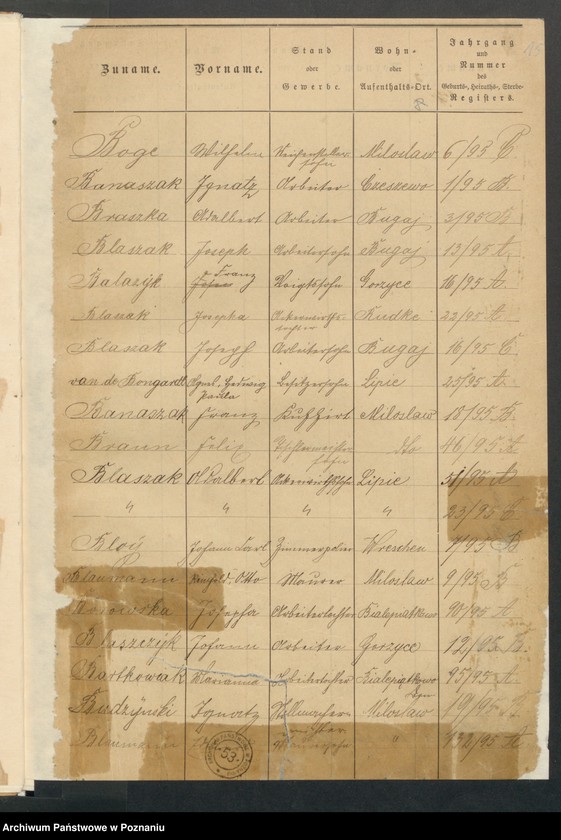 Zuname. Vorname. Stand oder Gewerbe. Wohn- oder Aufenthalts-Ort. Jahrgang und Nummer des Geburts-, Heiraths-, Sterbe-Registers.
Boge Wilhelm Miloslaw 6/95 C
Banaszak Ignatz Arbeiter Czeszewo 1/95 B.
Braszka Adalbert Arbeiter Bugaj 3/95
Blaszak Joseph Arbeitersohn Bugaj 13/95 A.
Balazyk Franz Gorzyce 16/95 A.
Josepha 22/95 A.
Blaszak Joseph Arbeitersohn Bugaj 16/95 C.
van de Bongardt Hedwig Paula Besitzersohn Lipie 25/95 A.
Banaszak Franz Miloslaw 18/95 B.
Braun Felix dto 46/95 A
Blaszak Adalbert Lipie 51/95 A
" " " " 23/95 C.
Johann Carl Wreschen 7/95 B
Otto Maurer Miloslaw 9/95 B
Josepha Arbeitertochter Bialepiątkowo 90/95 A.
Blaszczyk Johann Arbeiter Gorzyce 12/95 B.
Bartkowiak Marianna Bialepiątkowo 95/95 A.
Budzyński Ignatz Miloslaw 19/95
Blaumann " 132/95 A
53.
Archiwum Państwowe w Poznaniu